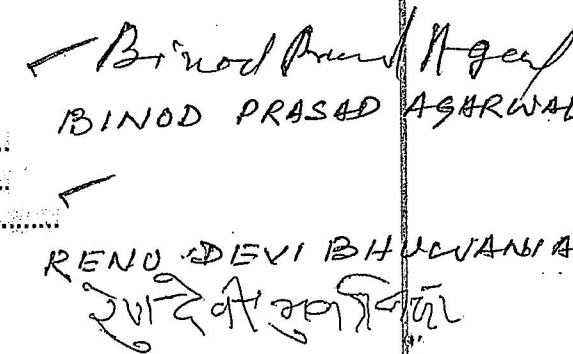 Binod Prasad Agarwal
BINOD PRASAD AGARWAL
RENU DEVI BHUWANIA
रेणु देवी